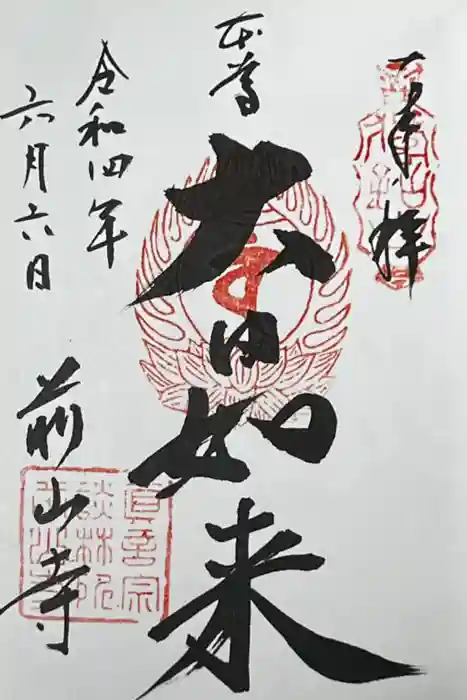 奉拝
本尊
大日如来
令和四年
六月六日
前山寺
真言宗
談林所
前山寺